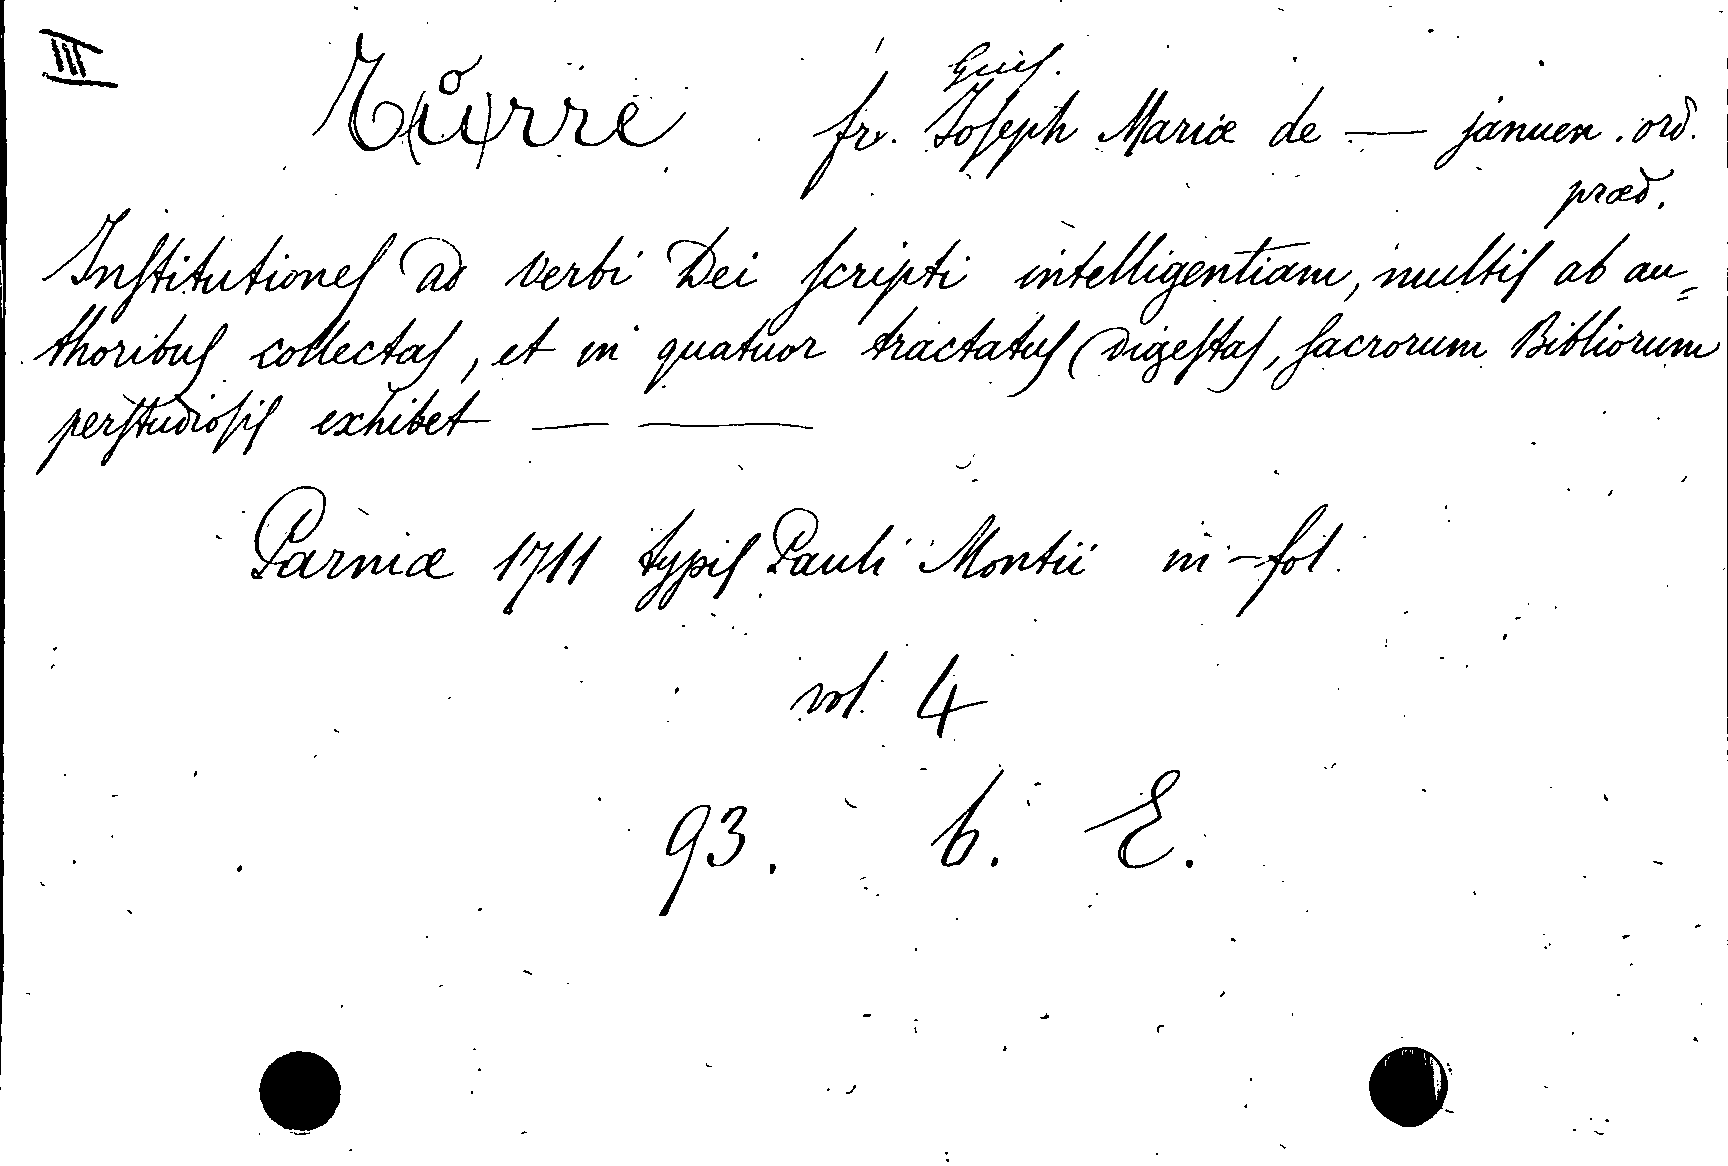 III
T(u)rre fr. Joseph Mariæ de — januen. ord.
præd.
Institutiones ad verbi Dei scripti intelligentiam, multis ab au=
thoribus collectas, et in quatuor tractatus digestas, sacrorum Bibliorum
perstudiosis exhibet — —
Parmæ 1711 typis Pauli Montii in-fol.
vol. 4
93. b. E.